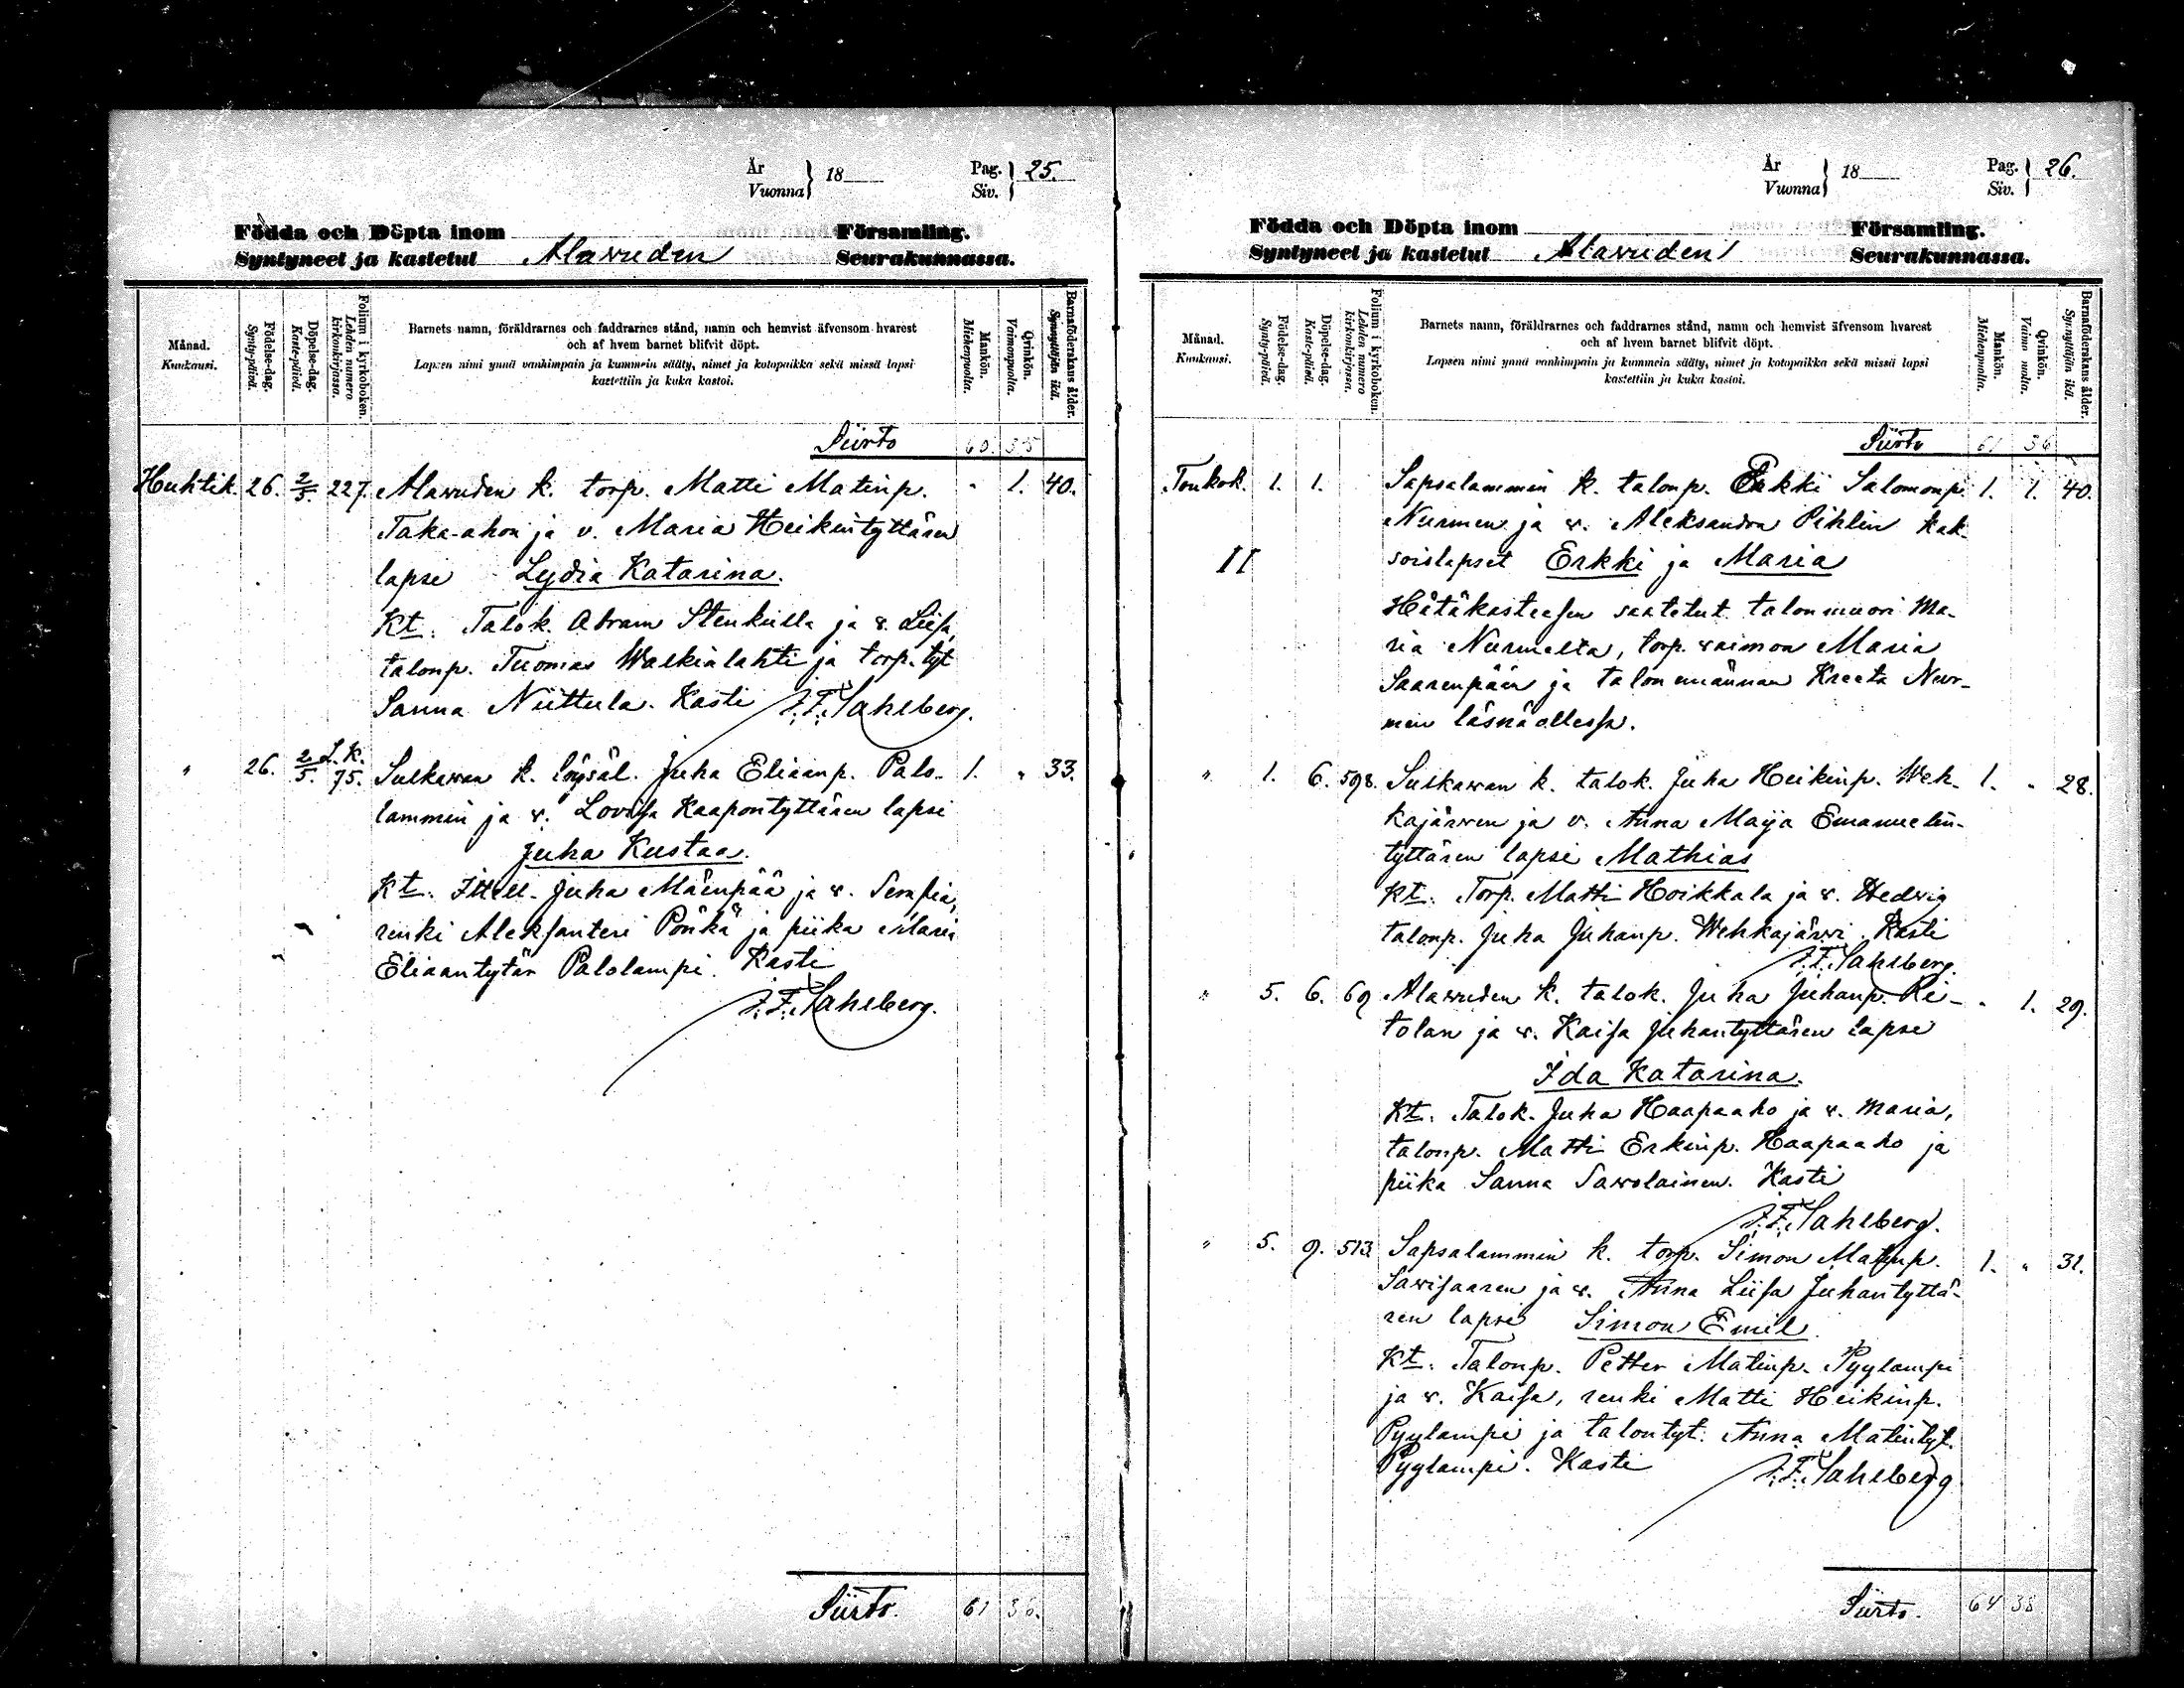 År
Vuonna } 18
Pag.
Siv. } 25.
Födda och Döpta inom Församling.
Syntyneet ja kastetut Alavuden Seurakunnassa.
Månad.
Kuukausi.
Födelse-dag.
Synty-päivä.
Döpelse-dag.
Kaste-päivä.
Folium i kyrkoboken.
Lehden numero
kirkonkirjassa.
Barnets namn, föräldrarnes och faddrarnes stånd, namn och hemvist äfvensom hvarest
och af hvem barnet blifvit döpt.
Lapsen nimi ynnä vanhimpain ja kummein sääty, nimet ja kotopaikka sekä missä lapsi
kastettiin ja kuka kastoi.
Mankön.
Miehenpuolta.
Qvinkön.
Vaimonpuolta.
Barnaföderskans ålder.
Synnyttäjän ikä.
Siirto 60. 35
Huhtik. 26. 2/5. 227. Alavuden k. torp. Matti Matinp. " 1. 40.
Taka-ahon ja v. Maria Heikintyttären
lapse Lydia Katarina.
Kt. Talok. Abram Stenkulla ja v. Liisa,
talonp. Tuomas Walkialahti ja torp. tyt
Sanna Niittula. Kasti J. F. Sahlberg.
" 26. 2/5. L. K. 75. Sulkawan k. löysäl. Juha Eliaanp. Palo- 1. " 33.
lammin ja v. Lovisa Kaapontyttären lapsi
Juha Kustaa.
Kt. Ittell. Juha Mäenpää ja v. Serafia,
renki Aleksanteri Pönkä ja piika Maria
Eliaantytär Palolampi. Kasti
J. F. Sahlberg.
Siirto. 61 36.
År
Vuonna } 18
Pag.
Siv. } 26.
Födda och Döpta inom Församling.
Syntyneet ja kastetut Alavuden Seurakunnassa.
Månad.
Kuukausi.
Födelse-dag.
Synty-päivä.
Döpelse-dag.
Kaste-päivä.
Folium i kyrkoboken.
Lehden numero
kirkonkirjassa.
Barnets namn, föräldrarnes och faddrarnes stånd, namn och hemvist äfvensom hvarest
och af hvem barnet blifvit döpt.
Lapsen nimi ynnä vanhimpain ja kummein sääty, nimet ja kotopaikka sekä missä lapsi
kastettiin ja kuka kastoi.
Mankön.
Miehenpuolta.
Qvinkön.
Barnaföderskans ålder.
Synnyttäjän ikä.
Siirto 61 36
Toukok. 1. 1. Sapsalammin k. talonp. Erkki Salomonp. 1. 1. 40.
Nurmen ja v. Aleksandra Pihlin kak-
II soislapset Erkki ja Maria
Hätäkasteesen saatetut talonmuori Ma-
ria Nurmelta, torp. vaimon Maria
Saarenpään ja talonemännän Kreeta Nur-
men läsnäollessa.
" 1. 6. 598. Sulkawan k. talok. Juha Heikinp. Weh- 1. " 28.
kajärven ja v. Anna Maija Emanuelin-
tyttären lapsi Mathias
Kt. Torp. Matti Hoikkala ja v. Hedvig
talonp. Juha Juhanp. Wehkajärvi. Kasti
J. F. Sahlberg.
" 5. 6. 69 Alavuden k. talok. Juha Juhanp. Ri- " 1. 29.
tolan ja v. Kaisa Juhantyttären lapse
Ida Katarina.
Kt. Talok. Juha Haapaaho ja v. Maria,
talonp. Matti Erkinp. Haapaaho ja
piika Sanna Savolainen. Kasti
J. F. Sahlberg.
" 5. 9. 513. Sapsalammin k. torp. Simon Matinp. 1. " 31.
Savisaaren ja v. Anna Liisa Juhantyttä-
ren lapsi Simon Emil
Kt. Talonp. Petter Matinp. Pyylampi
ja v. Kaisa, renki Matti Heikinp.
Pyylampi ja talontyt. Anna Matintyt.
Pyylampi. Kasti J. F. Sahlberg
Siirto. 64 38